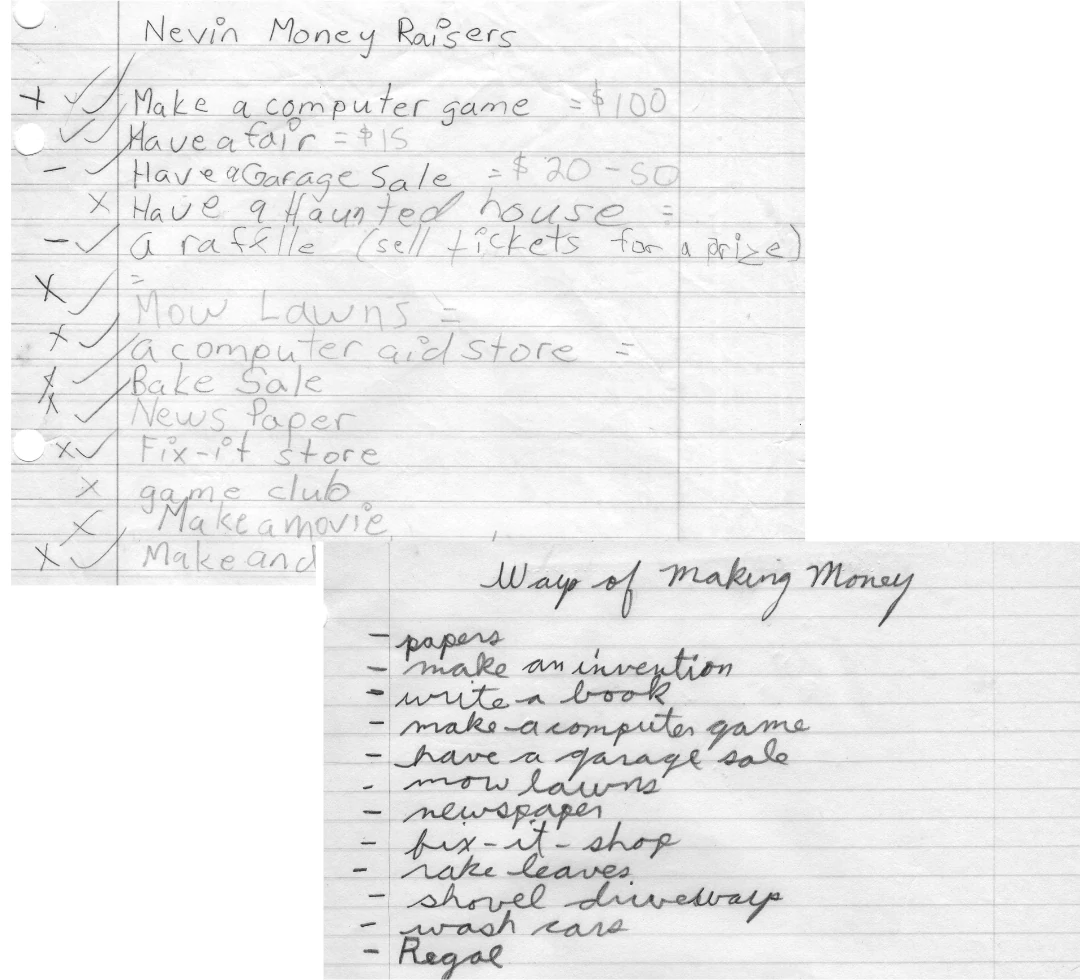 Nevin Money Raisers
+ ✓✓ Make a computer game = $100
✓✓ Have a fair = $15
- ✓ Have a Garage Sale = $20 - 50
x Have a Haunted house =
- ✓ a raffle (sell tickets for a prize)
=
x ✓ Mow Lawns =
x ✓ a computer aid store =
x ✓ Bake Sale
x ✓ News Paper
x ✓ Fix-it store
x game club
x Make a movie
x ✓ Make and
Ways of Making Money
- papers
- make an invention
- write a book
- make a computer game
- have a garage sale
- mow lawns
- newspaper
- fix-it-shop
- rake leaves
- shovel driveways
- wash cars
- Regal